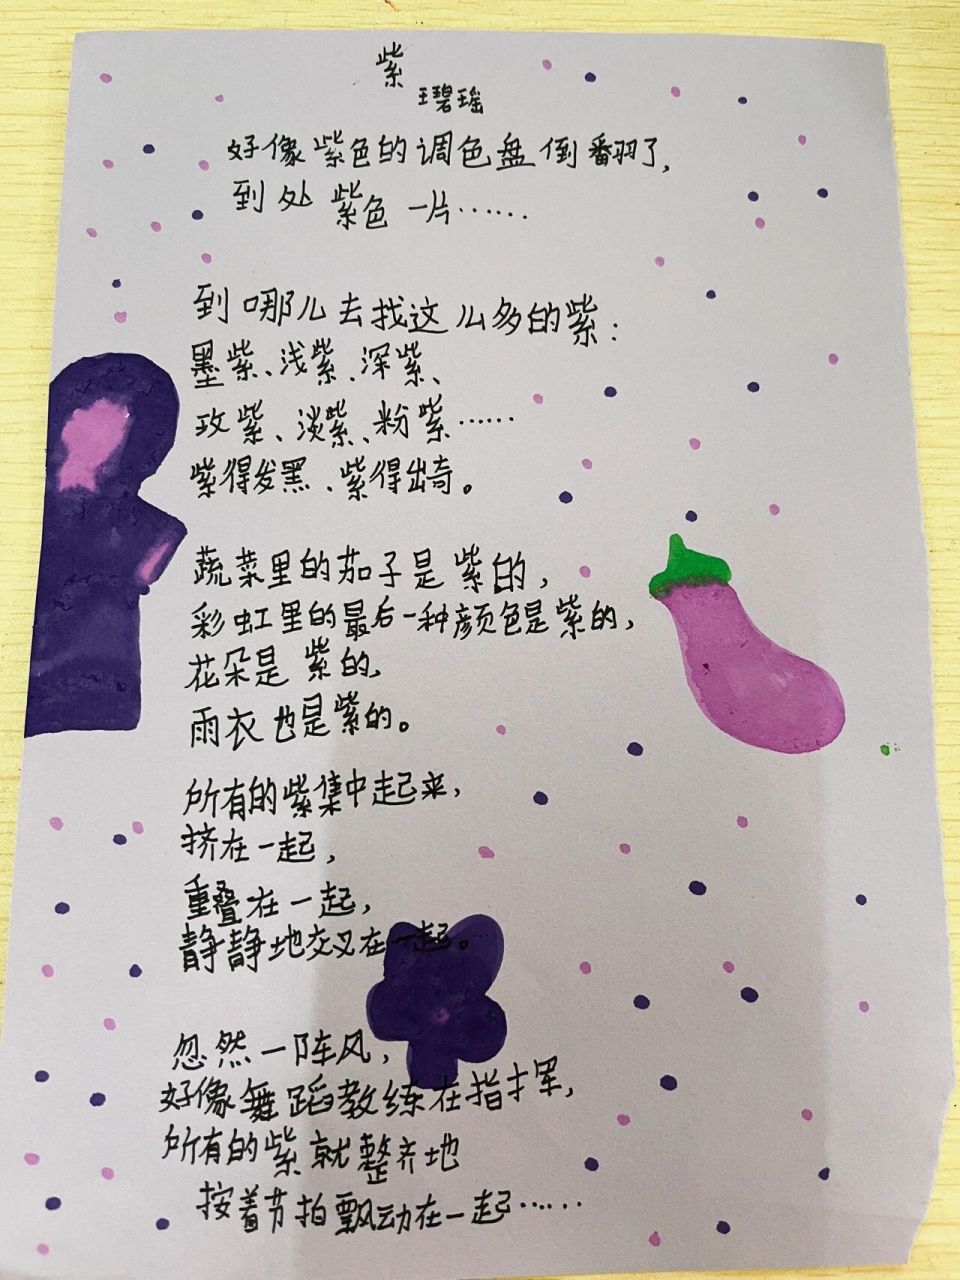 紫
王碧瑶
好像紫色的调色盘倒翻了，
到处紫色一片……
到哪儿去找这么多的紫：
墨紫、浅紫、深紫、
玫紫、淡紫、粉紫……
紫得发黑、紫得出奇。
蔬菜里的茄子是紫的，
彩虹里的最后一种颜色是紫的，
花朵是紫的，
雨衣也是紫的。
所有的紫集中起来，
挤在一起，
重叠在一起，
静静地交叉在一起。
忽然一阵风，
好像舞蹈教练在指挥，
所有的紫就整齐地
按着节拍飘动在一起……